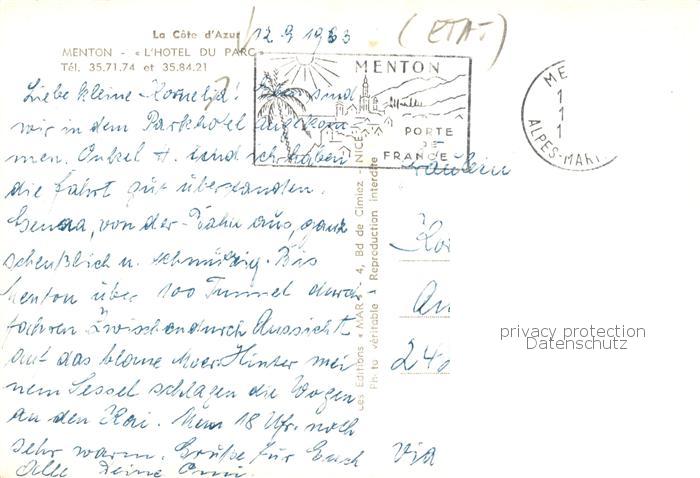 La Côte d'Azur
MENTON - « L'HOTEL DU PARC »
Tél. 35.71.74 et 35.84.21
12.9.1963
(ETAT)
MENTON
PORTE
DE
FRANCE
ME
1
1
1
ALPES-MARI
Liebe kleine Kornelia! Hier sind
wir in dem Parkhotel angekom-
men. Onkel H. und ich haben
die Fahrt gut überstanden.
Genua, von der Bahn aus, ganz
scheußlich u. schmutzig. Bis
Menton über 100 Tunnel durch
fahren. Zwischendurch Aussicht
auf das blaue Meer. Hinter mei
nem Sessel schlagen die Wogen
an den Kai. Nun 18 Uhr. noch
sehr warm. Grüße für Euch
Alle Deine Omi.
Les Editions « MAR » - 4, Bd de Cimiez - NICE
Photo véritable - Reproduction interdite
Fräulein
Kor
An
240
Via
privacy protection
Datenschutz